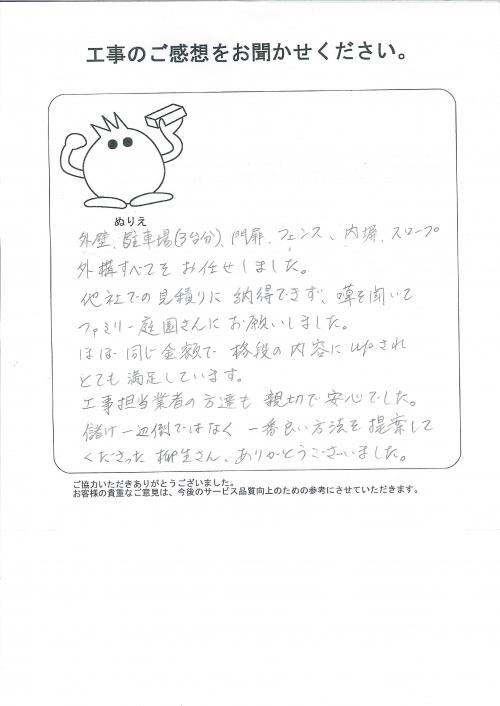 工事のご感想をお聞かせください。
ぬりえ
外壁、駐車場(3台分)、門扉、フェンス、内塀、スロープ
外構すべてを お任せしました。
他社での見積りに 納得できず、噂を聞いて
ファミリー庭園さんに お願いしました。
ほぼ 同じ金額で 格段の内容に upされ
とても 満足しています。
工事担当業者の方達も 親切で 安心でした。
儲け一辺倒ではなく 一番良い方法を 提案して
くださった 柳生さん、ありがとうございました。
ご協力いただきありがとうございました。
お客様の貴重なご意見は、今後のサービス品質向上のための参考にさせていただきます。